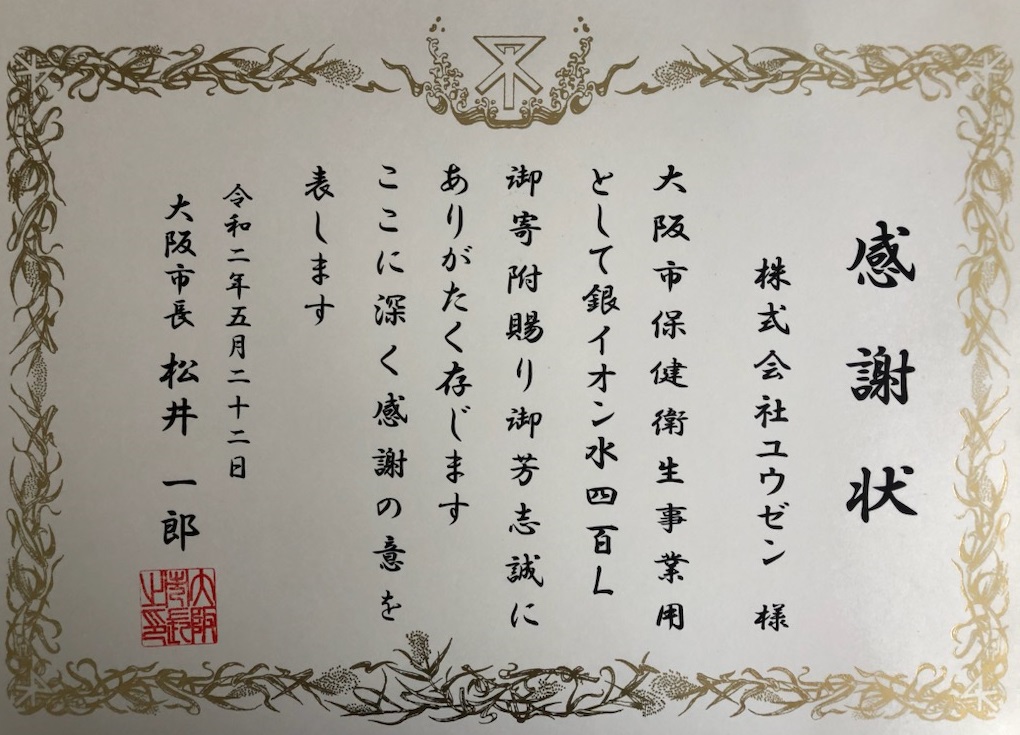 感謝状
株式会社ユウゼン 様
大阪市保健衛生事業用
として銀イオン水四百L
御寄附賜り御芳志誠に
ありがたく存じます
ここに深く感謝の意を
表します
令和二年五月二十二日
大阪市長 松井一郎
大阪市長之印